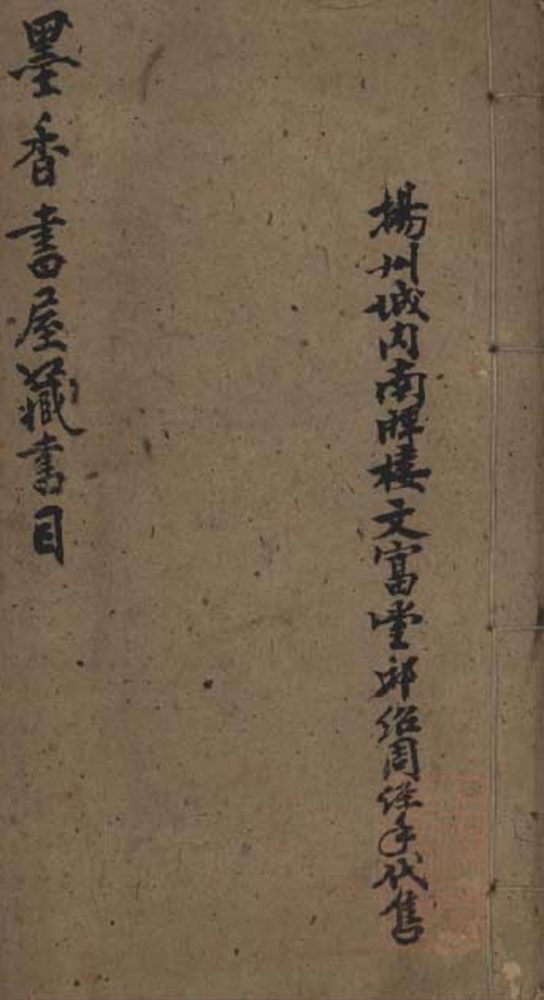 揚州城内南牌樓文富堂邱紹周經手代售
墨香書屋藏書目